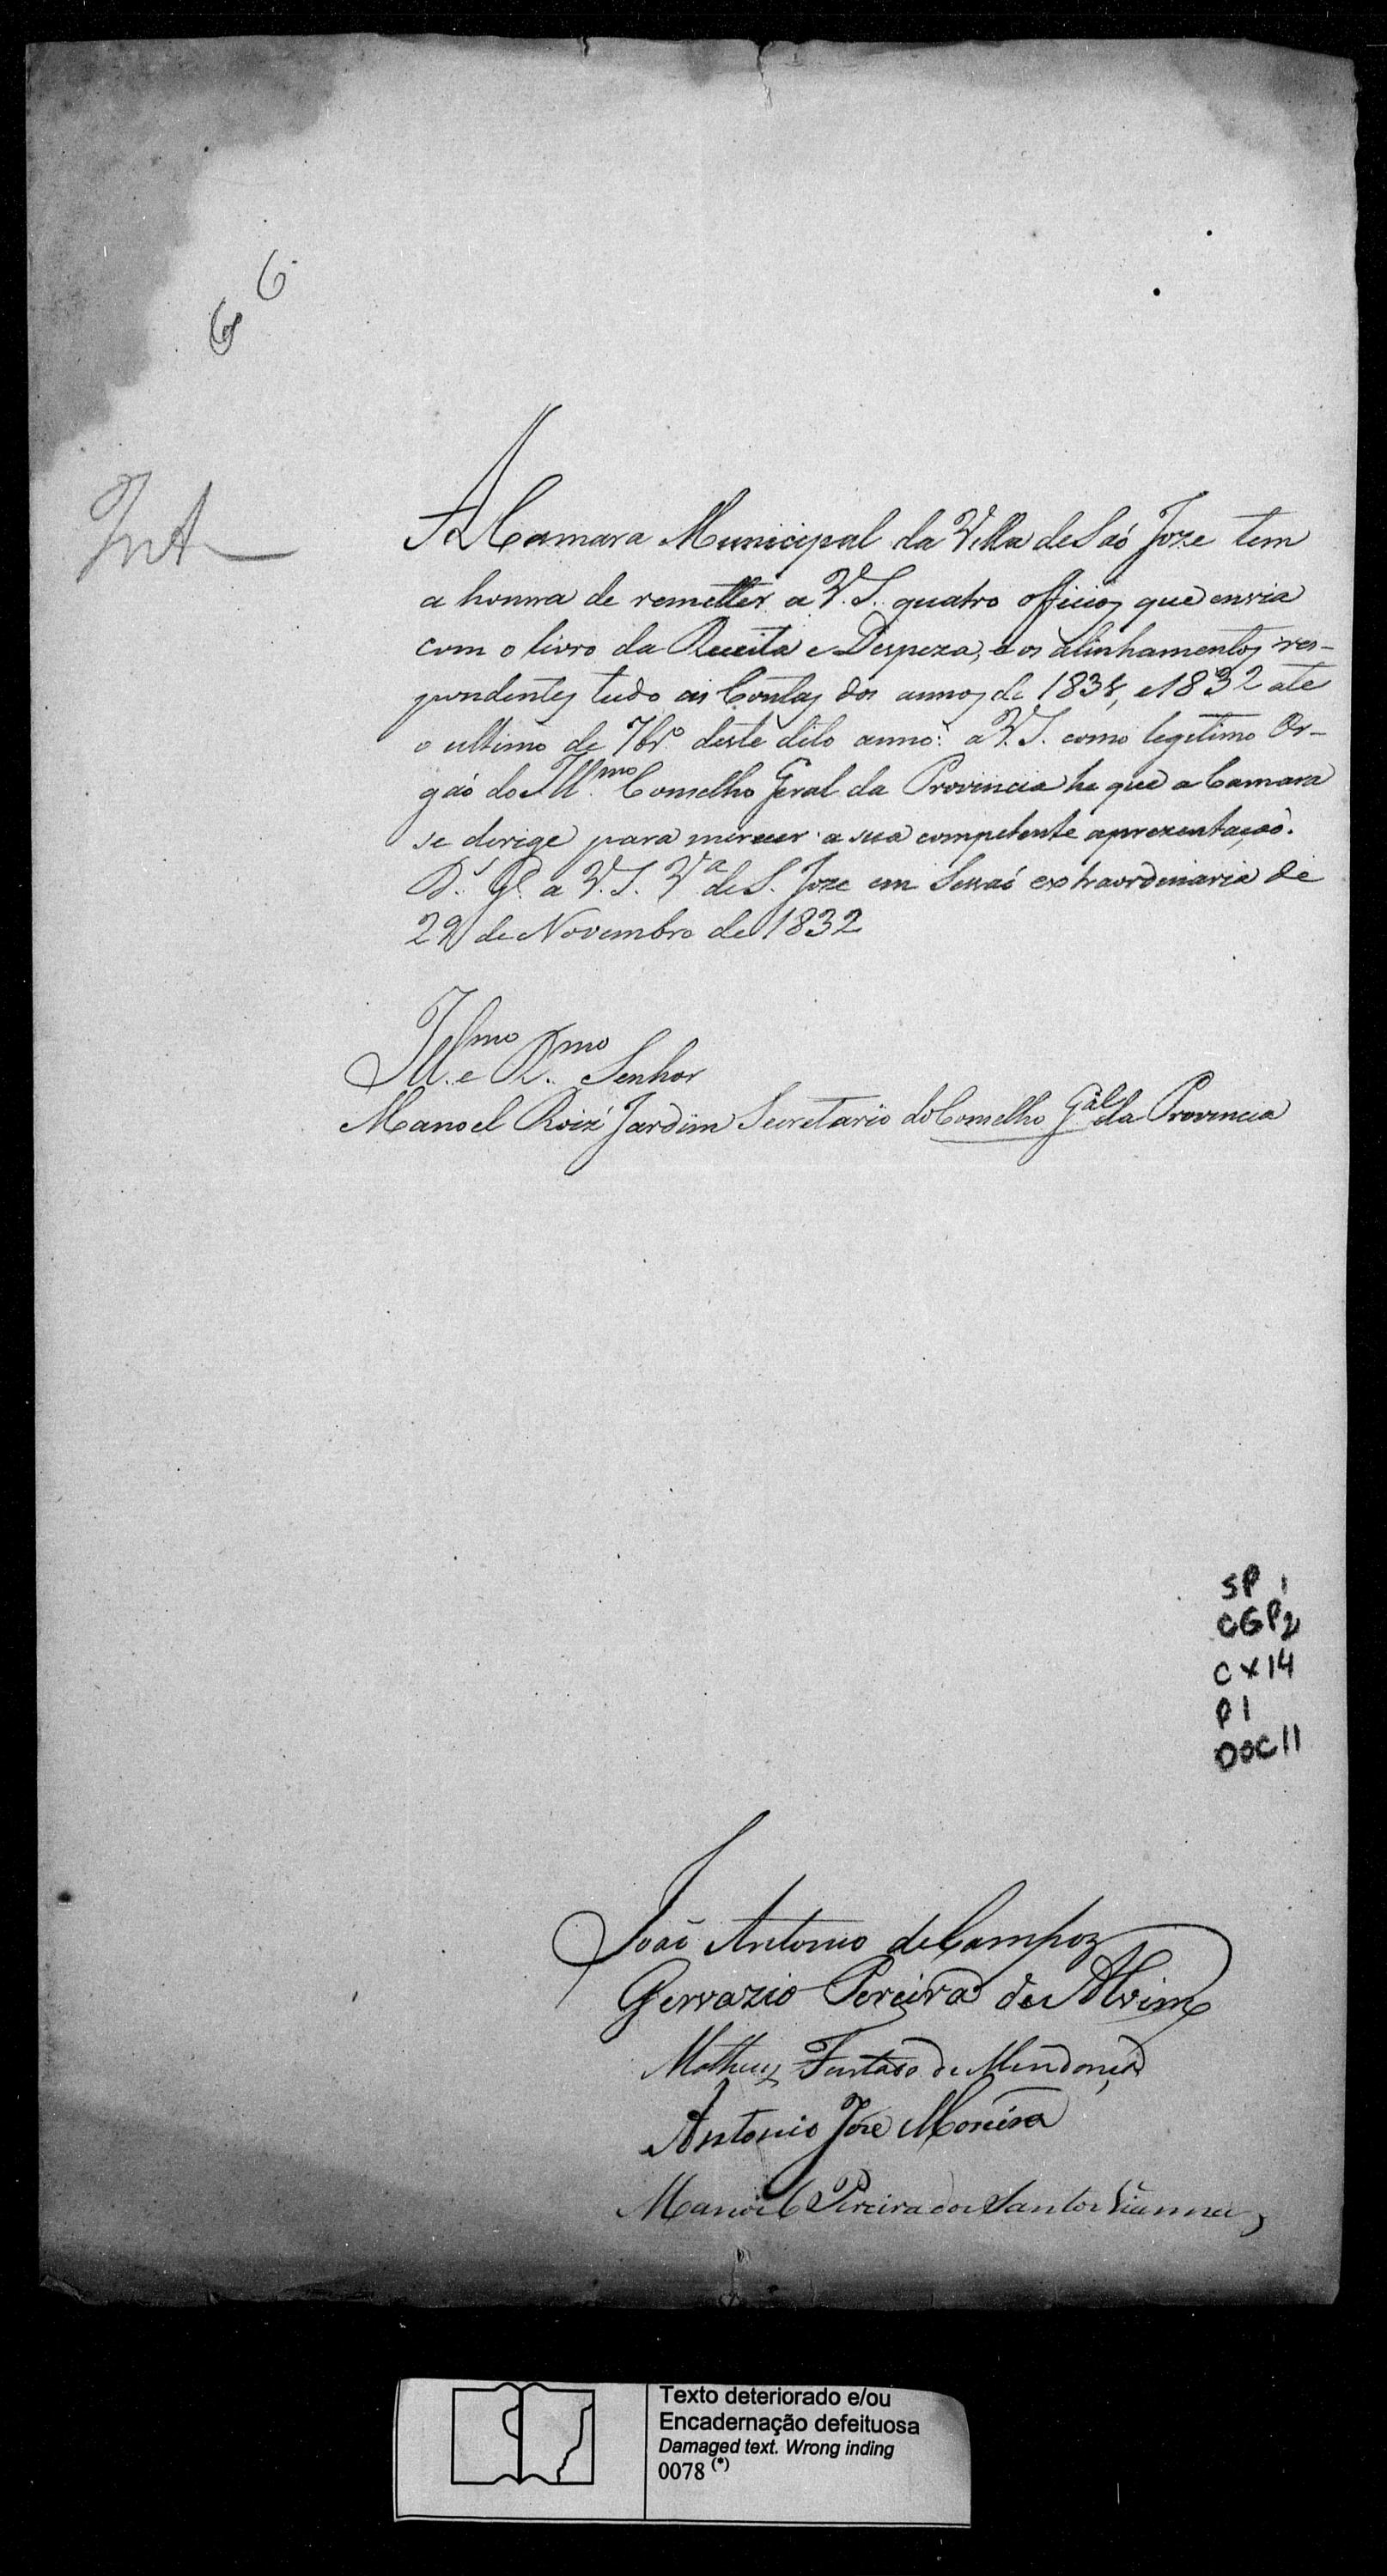 6
6
Int
A Camara Municipal da Villa de Saó Joze tem
a honrra de remetter a V. S. quatro officios que envia
com o livro da Receita e Despeza, e os alinhamentos res-
pondentes tudo as Contas dos annos de 1831, e 1832 ate
o ultimo de 7br.o deste dito anno: a V. S. como legitimo Or-
gaó do Ill.mo Conselho Geral da Provincia he que a Camara
se dirige para merecer a sua competente aprezentaçaó.
D.s G.e a V. S. V.a de S. Joze em Sessaó extraordinaria de
29 de Novembro de 1832
Ill.mo e R.mo Senhor
Manoel Roiz Jardim Secretario do Conselho G.al da Provincia
SP 1
CGP2
CX14
P1
DOC11
João Antonio de Campoz
Gervazio Pereira de Alvim
Matheus Furtado de Mendonça
Antonio Joze Moreira
Manoel Pereira dos Santos Vianna
Texto deteriorado e/ou
Encadernação defeituosa
Damaged text. Wrong inding
0078 (*)